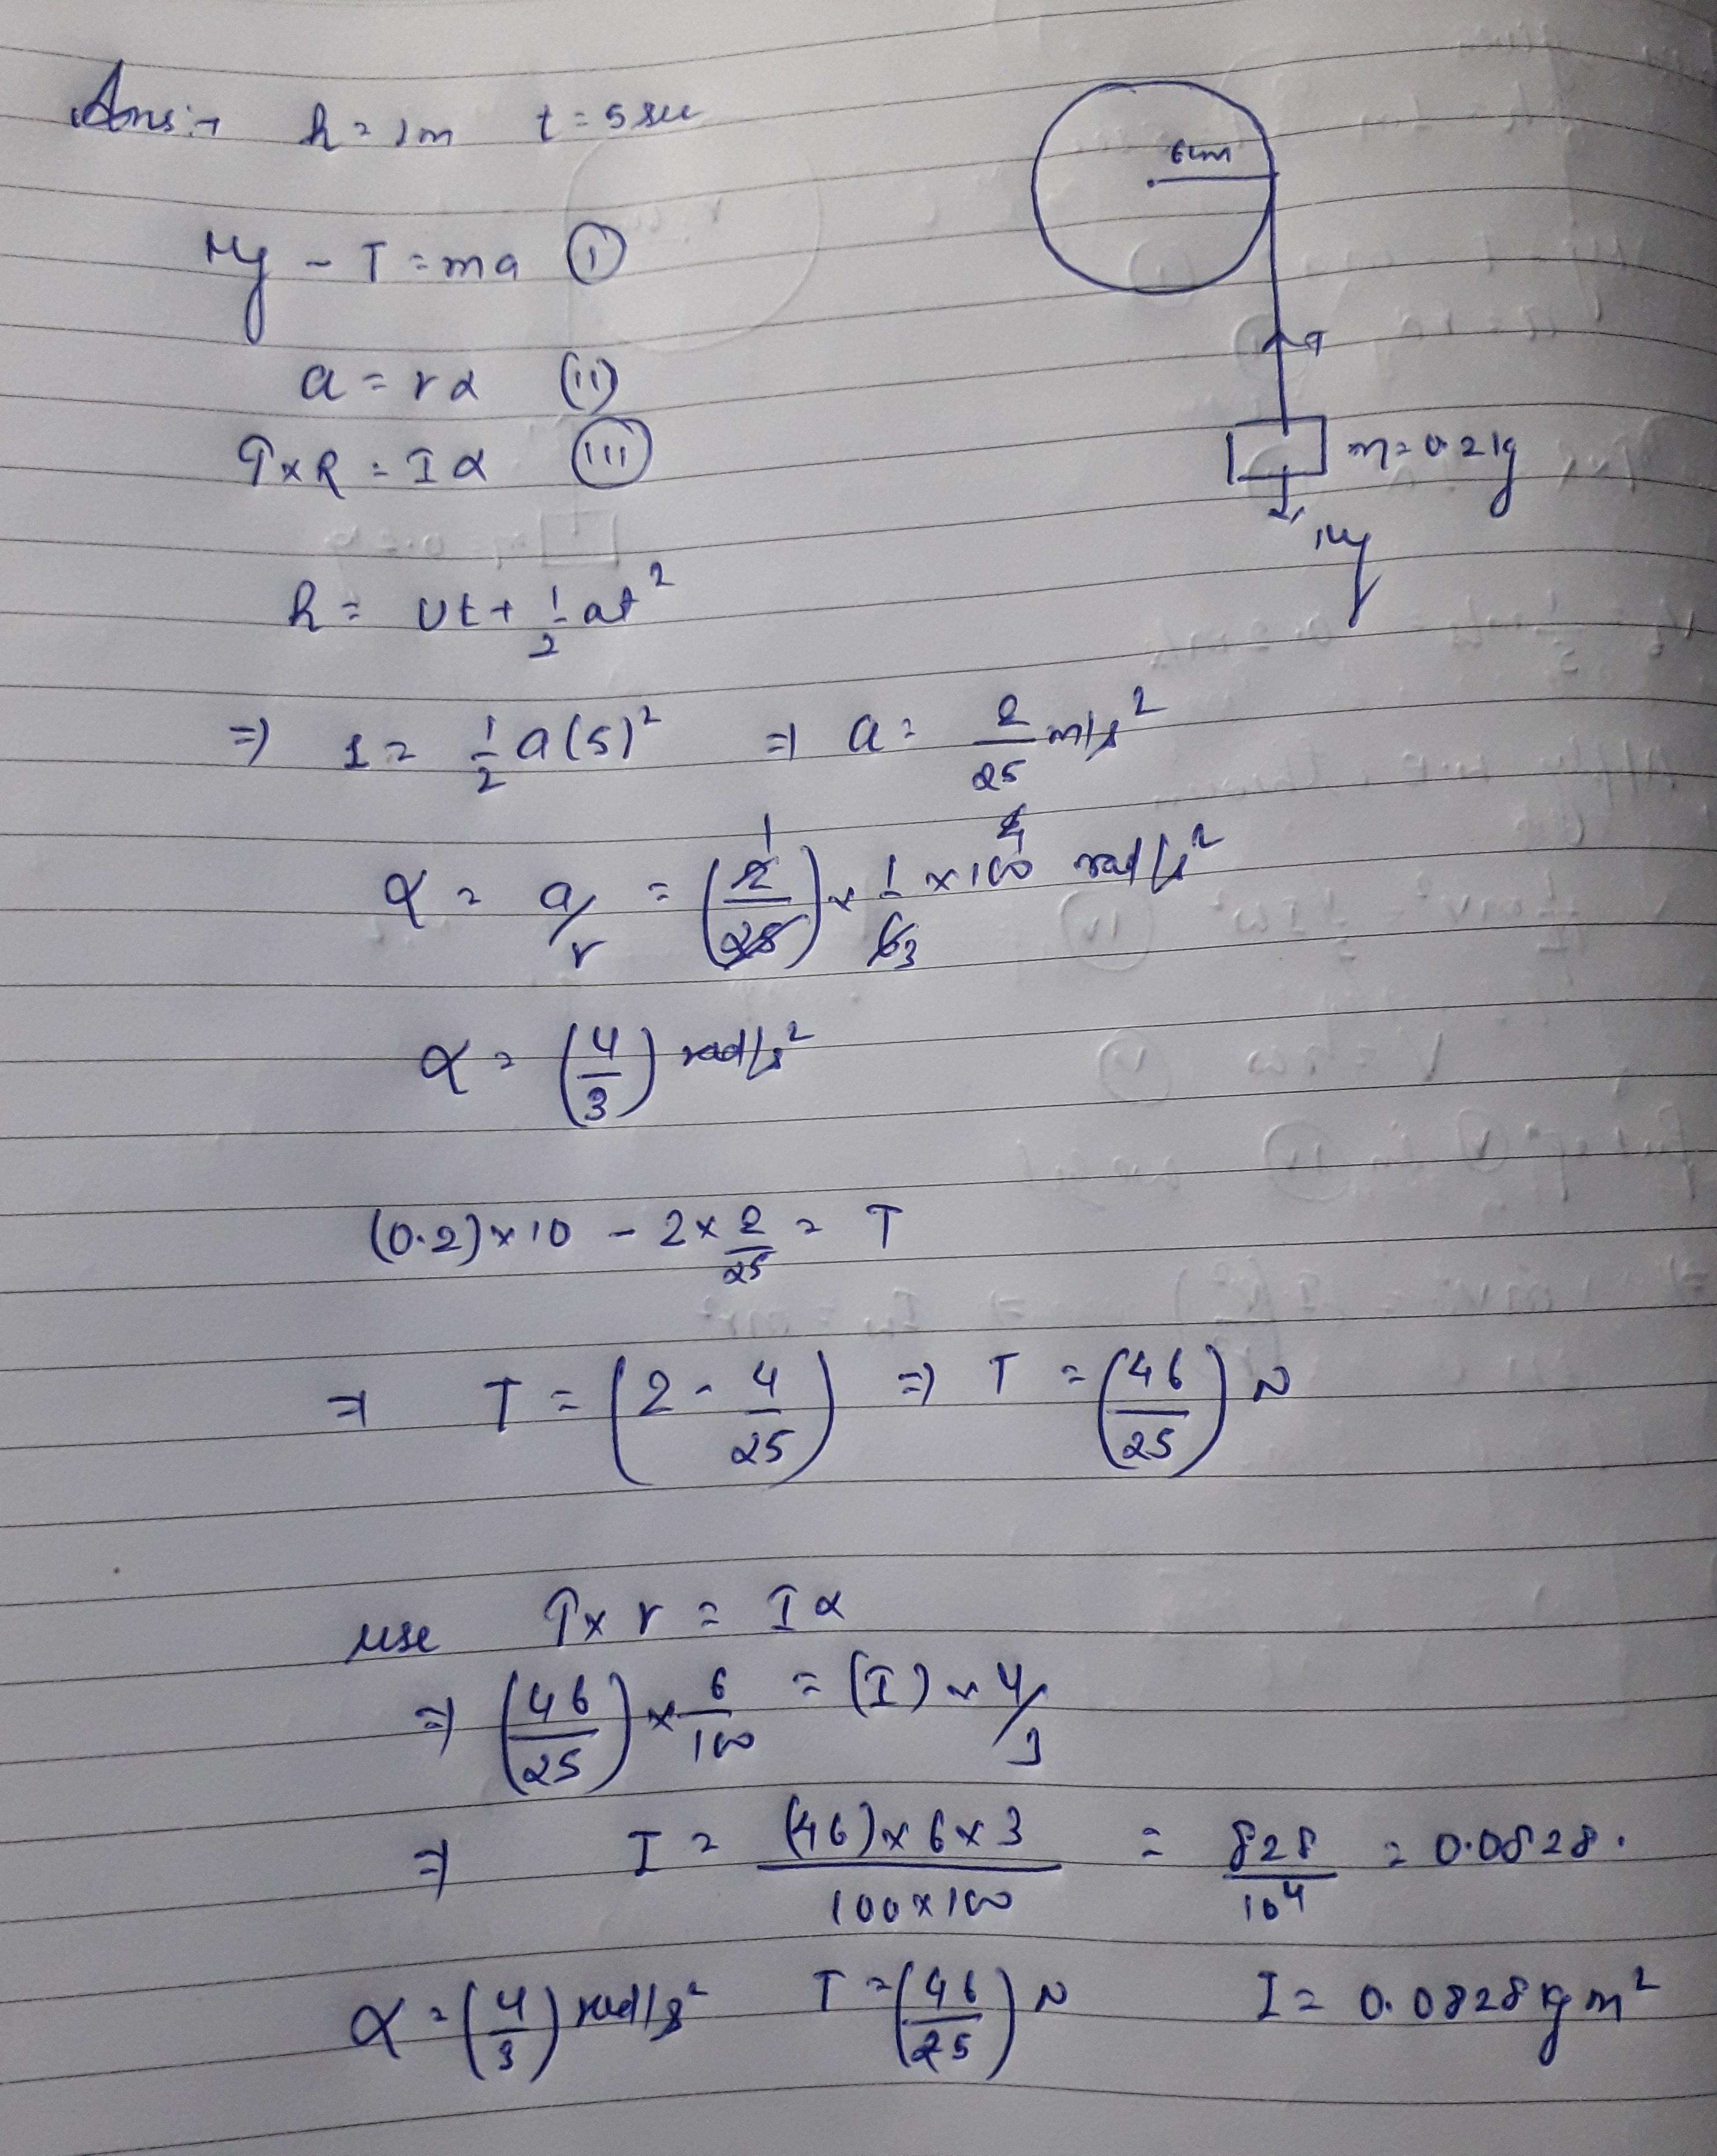 Ans:→ h = 1m t = 5 sec
6cm
Mg - T = ma (I)
a = rα (ii)
T
T×R = Iα (III)
m = 0.2kg
Mg
h = ut + 1/2 at²
⇒ 1 = 1/2 a(5)² ⇒ a = 2/25 m/s²
α = a/r = (2/25) × 1/6 × 100 rad/s²
α = (4/3) rad/s²
(0.2)×10 - 2×2/25 = T
⇒ T = (2 - 4/25) ⇒ T = (46/25) N
use T×r = Iα
⇒ (46/25) × 6/100 = (I) × 4/3
⇒ I = (46)×6×3/100×100 = 828/10⁴ = 0.0828.
α = (4/3) rad/s² T = (46/25) N I = 0.0828 kg m²